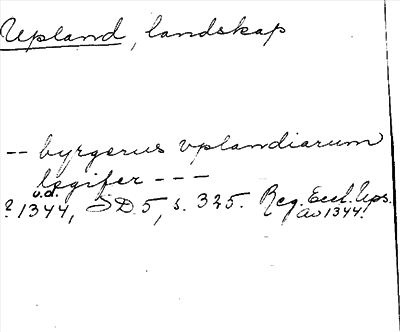 Upland, landskap
-- byrgerus vplandiarum
legifer ---
? u.d. 1344, SD 5, s. 325. Reg. Eccl. Ups.
av 1344.